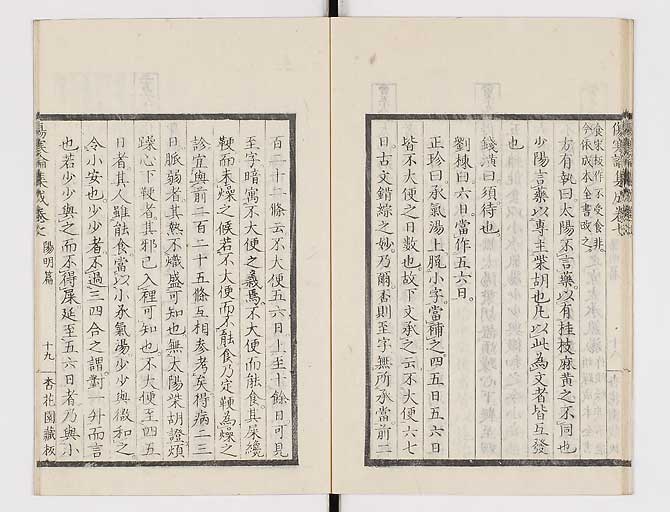 傷寒論集成卷七
食字宋板作不受食非
今依成本全書改之
方有執曰太陽不言藥以有桂枝麻黃之不同也
少陽言藥以專主柴胡也凡以此為文者皆互發
也
錢潢曰須待也
劉棟曰六日當作五六日
正珍曰承氣湯上脫小字當補之四五日五六日
皆不大便之日數也故下文承之云不大便六七
日古文錯綜之妙乃爾否則至字無所承當前二
百二十二條云不大便五六日上至十餘日可見
至字暗寓不大便之義焉不大便而能食其屎纔
鞕而未燥之候若不大便而不能食乃定鞕為燥之
診宜與前二百二十五條互相參考矣得病二三
日脈弱者其熱不熾盛可知也無太陽柴胡證煩
躁心下鞕者其邪已入裡可知也不大便至四五
日者其人雖能食當以小承氣湯少少與微和之
令小安也少少者不過三四合之謂對一升而言
也若少少與之而不得屎延至五六日者乃與小
傷寒論集成卷七 陽明篇 十九 杏花園藏板